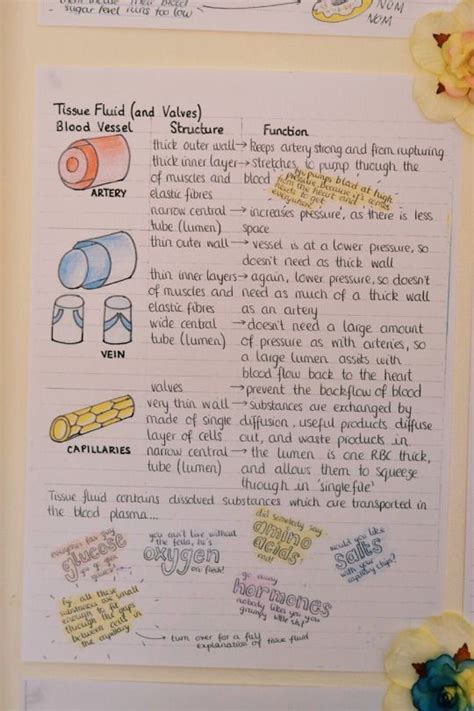 sugar level runs too low
NOM
NOM
Tissue Fluid (and Valves)
Blood Vessel Structure Function
thick outer wall → keeps artery strong and from rupturing
thick inner layer → stretches, to pump through the
of muscles and blood
elastic fibres
by, pumps blood at high
pressure, because it's
from the heart and
needs to get
everywhere
ARTERY
narrow central → increases pressure, as there is less
tube (lumen) space
thin outer wall → vessel is at a lower pressure, so
doesn't need as thick wall
thin inner layers → again, lower pressure, so doesn't
of muscles and need as much of a thick wall
elastic fibres as an artery
wide central → doesn't need a large amount
tube (lumen) of pressure as with arteries, so
a large lumen assits with
blood flow back to the heart
VEIN
valves → prevent the backflow of blood
very thin wall → substances are exchanged by
made of single diffusion, useful products diffuse
layer of cells out, and waste products in
narrow central → the lumen is one RBC thick,
tube (lumen) and allows them to squeeze
through in 'single file'
CAPILLARIES
Tissue fluid contains dissolved substances which are transported in
the blood plasma...
glucose
you can't live without
the fella, he's
oxygen
oh fresh!
did somebody say
amino
acids
would you like
salts
with your
capillary chips?
go away
hormones
nobody likes you
all these are small
enough to fit
through the gaps
between cells in
the capillary
→ turn over for a full
explanation of tissue fluid